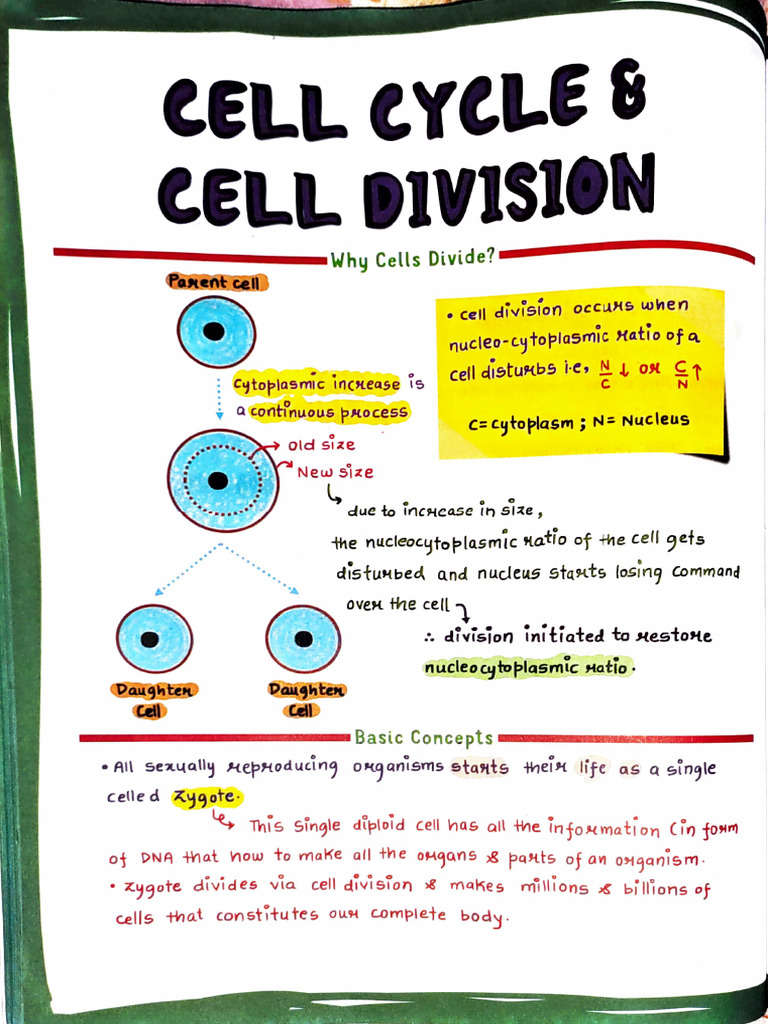 CELL CYCLE &
CELL DIVISION
Why Cells Divide?
Parent cell
• cell division occurs when
nucleo-cytoplasmic ratio of a
cell disturbs i.e, N/C ↓ or C/N ↑
C=cytoplasm ; N= Nucleus
Cytoplasmic increase is
a continuous process
Old size
New size
due to increase in size,
the nucleocytoplasmic ratio of the cell gets
disturbed and nucleus starts losing command
over the cell
∴ division initiated to restore
nucleocytoplasmic ratio.
Daughter
Cell
Daughter
Cell
Basic Concepts
• All sexually reproducing organisms starts their life as a single
celled zygote.
This single diploid cell has all the information (in form
of DNA that how to make all the organs & parts of an organism.
• zygote divides via cell division & makes millions & billions of
cells that constitutes our complete body.